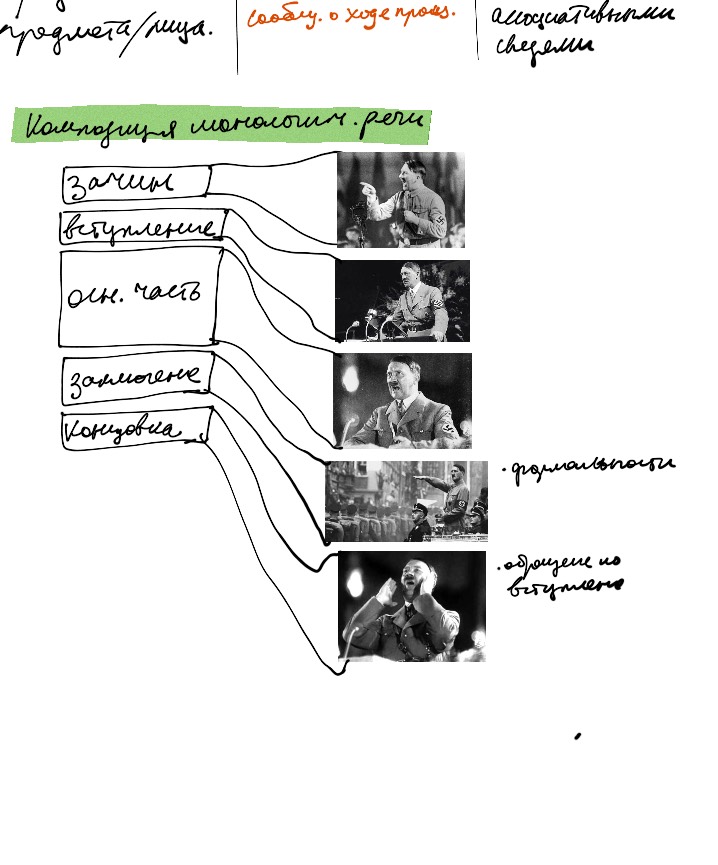 предмета/лица.
сообщ. о ходе произ.
ассоциативными
сведями
Композиция монологич. речи
зачин
вступление
осн. часть
заключене
концовка
· формальности
· обращене ко
вступлене